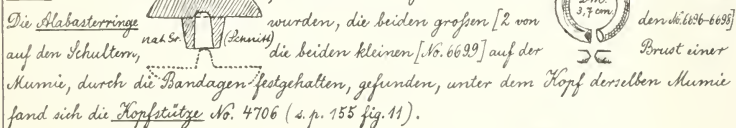 Die Alabasterringe wurden, die beiden großen [2 von den №. 6696-6698]
2 m.
3,7 cm
nat. Gr. (Schnitt)
auf den Schultern, die beiden kleinen [No. 6699] auf der Brust einer
Mumie, durch die Bandagen festgehalten, gefunden, unter dem Kopf derselben Mumie
fand sich die Kopfstütze No. 4706 (s. p. 155 fig. 11).